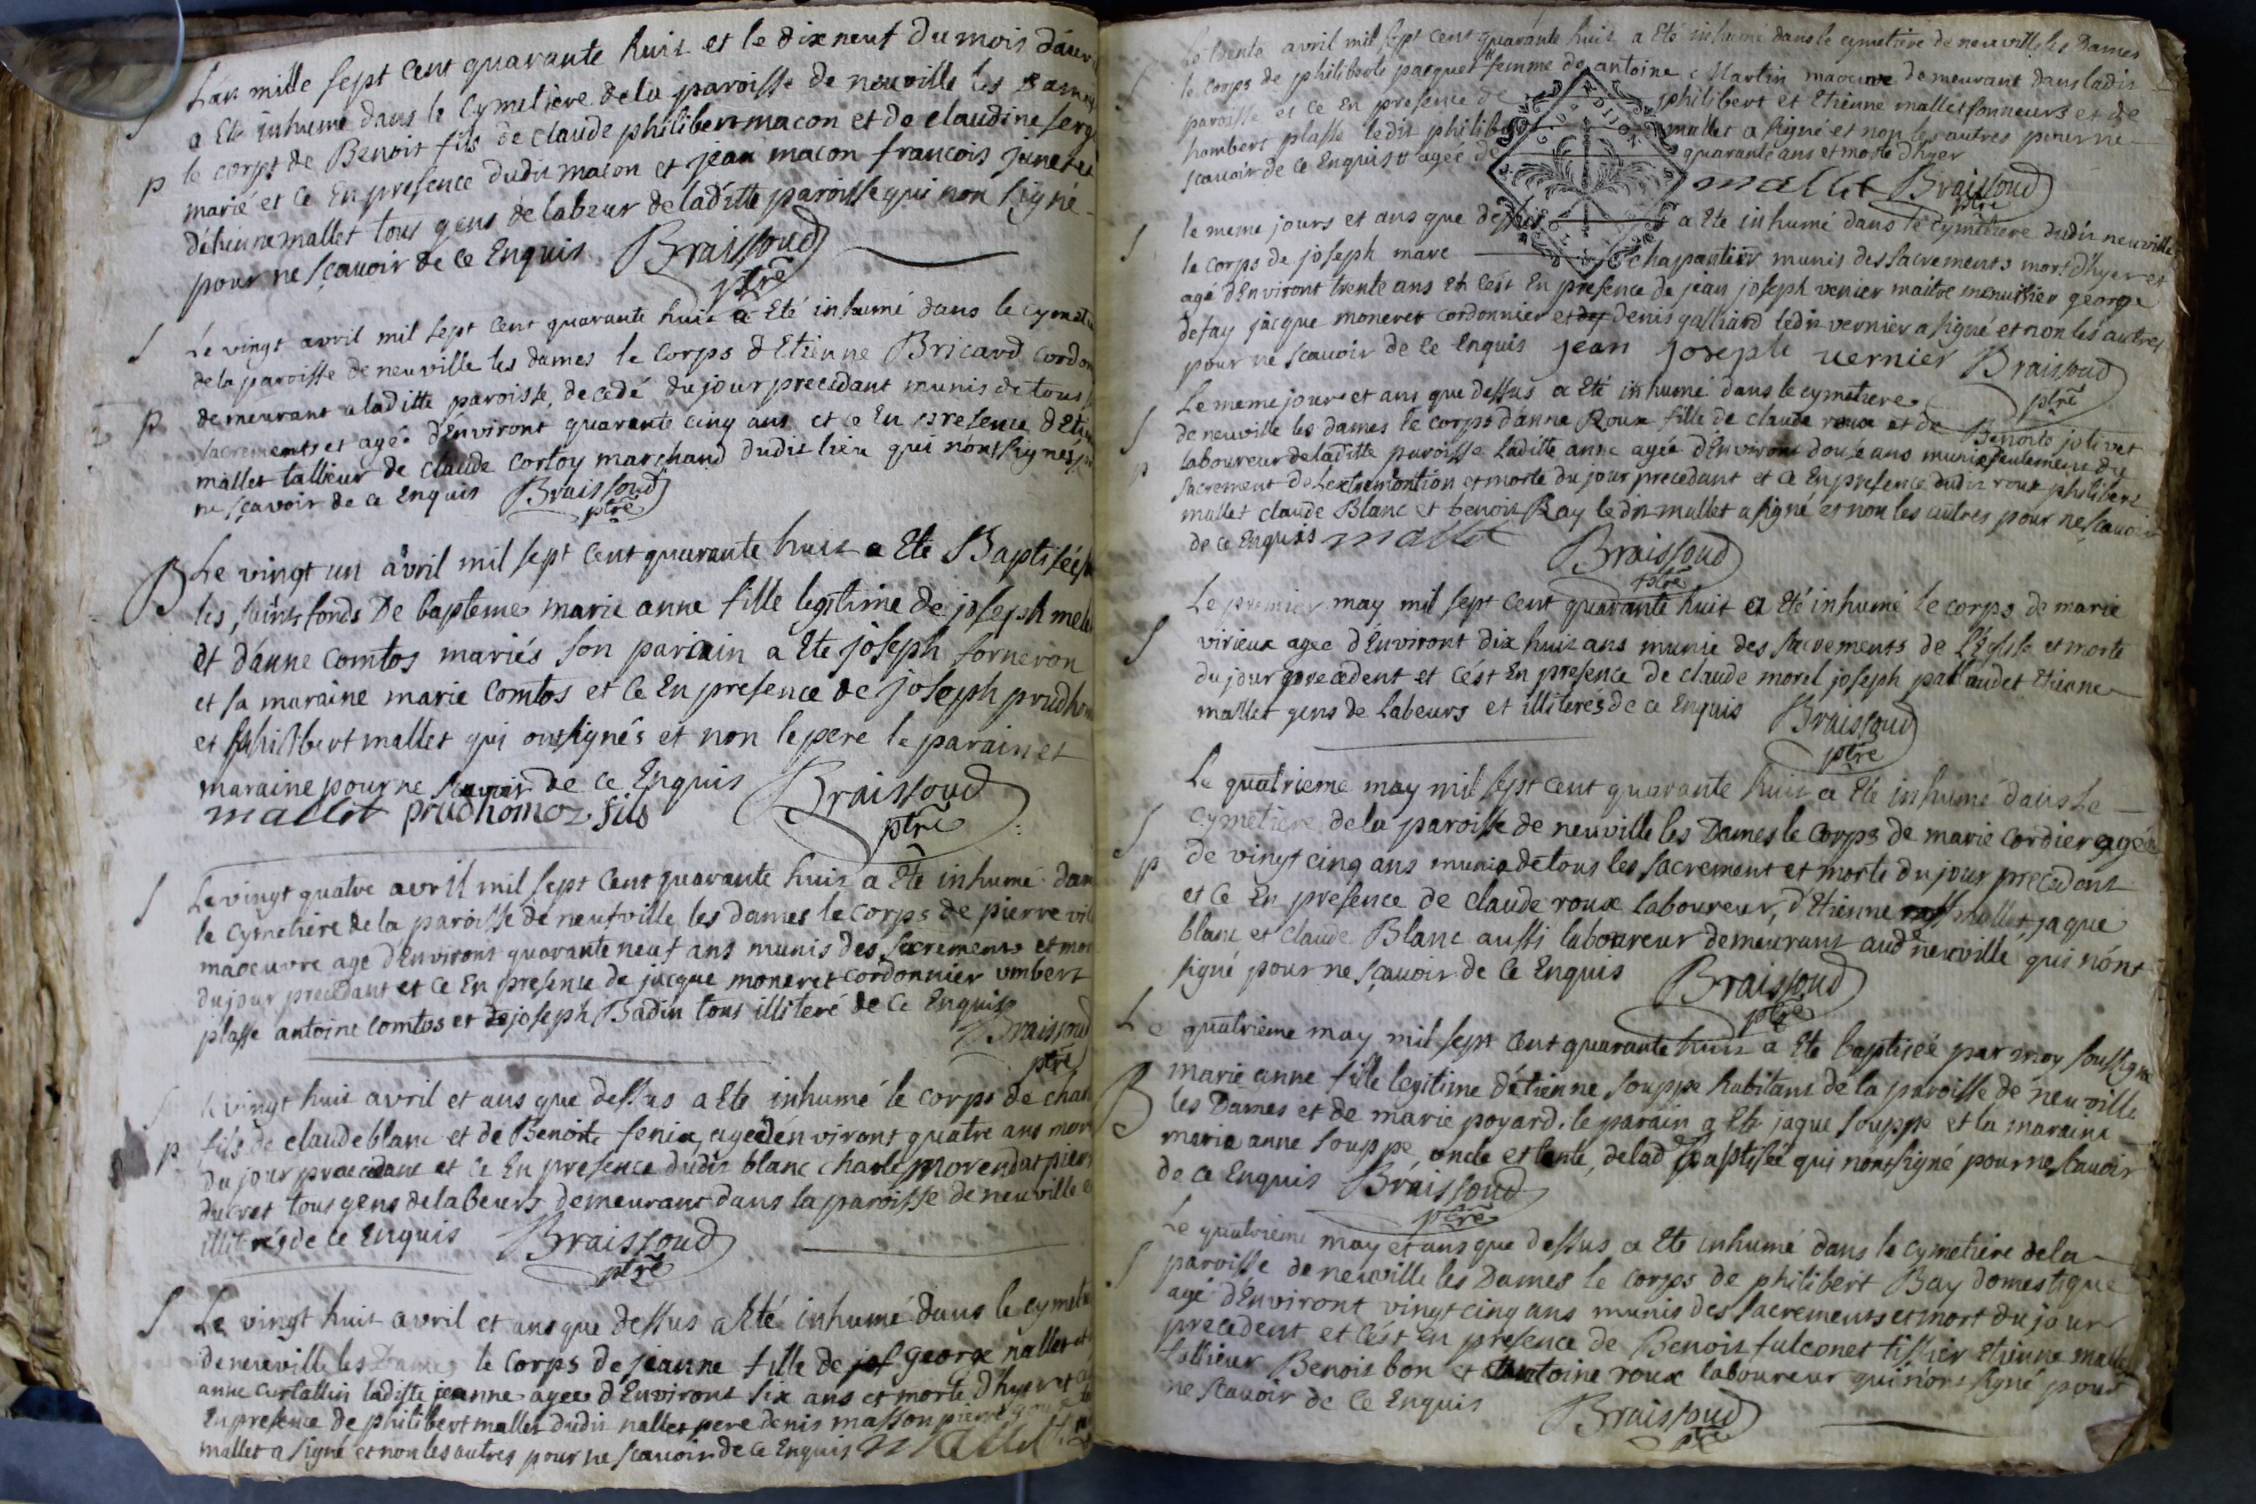 L'an mille sept cent quarante huit et le dixneuf du mois d'avri
a Eté inhumé dans le Cymetiere de la paroisse de neuville les Dames
le corps de Benoit fils de claude philibert macon et de claudine
marié et ce En presence dudit macon et jean macon francois
d'étienne mallet tous gens de labeur de laditte paroisse qui non signé
pour ne sçavoir de ce Enquis Braissoud
ptre
S
p
Le vingt avril mil sept cent quarante huit a Eté inhumé dans le cymet
de la paroisse de neuville les dames le Corps d'Etienne Bricard Cordon
demeurant a laditte paroisse, decedé du jour precedant munis de tous
sacrements et agé d'Environt quarante cinq ans et ce En presence d'Eti
mallet tallieur de claude Cortoy marchand dudit lieu qui n'ont signés
ne sçavoir de ce Enquis Braissoud
ptre
S
p
B
Le vingt un avril mil sept cent quarante huit a Ete Baptisée
les saints fonds De bapteme marie anne fille legitime de joseph
et d'anne Comtos mariés son parain a Ete joseph forneron
et sa maraine marie Comtos et ce En presence de joseph prudhom
et philibert mallet qui ont signés et non le pere le parain et
maraine pour ne sçavoir de ce Enquis Braissoud
mallet prudhomoz fils
ptre
S
Le vingt quatre avril mil sept Cent quarante huit a Eté inhumé dan
le Cymetiere de la paroisse de neufville les Dames le Corps de pierre
maoeuvre agé d'Environt quarante neuf ans munis des sacrements et mor
du jour precedant et ce En presence de jacque moneret cordonnier umbert
plasse antoine Comtos et de joseph Badin tous illiteré de ce Enquis
Braissoud
ptre
S
p
vingt huit avril et ans que dessus a Ete inhumé le corps de
fils de claude blanc et de Benoite fenix, ageé d'environt quatre ans mor
du jour praecedant et ce En presence dudit blanc charle morendat
ducret tous gens de labeurs demeurant dans la paroisse de neuville
illiterés de ce Enquis Braissoud
ptre
S
Le vingt huit avril et ans que dessus a Eté inhumé dans le cymet
de neuville les Dames le Corps de jeanne fille de george nallet et
anne Curtallin laditte jeanne ageé d'Environt six ans et morte d'hyer
En presence de philibert mallet dudit nallet pere denis masson pierre
mallet a signé et non les autres pour ne scavoir de ce Enquis mallet
Le trente avril mil sept cent quarante huit a Eté inhumé dans le cymetiere de neuville les Dames
le Corps de philiberte pacquet femme de antoine Martin maoeuvre demeurant dans ladit
paroisse et ce En presence de philibert et Etienne mallet sonneurs et de
humbert plasse ledit philibert mallet a signé et non les autres pour ne
scavoir de ce Enquis agée de quarante ans et morte d'hyer
mallet Braissoud
ptre
S
le meme jours et ans que dessus a Ete inhumé dans le Cymetiere dudit neuville
le corps de joseph mare chapantier munis des sacrements mort d'hyer et
agé d'Environt trente ans et c'est En presence de jean joseph venier maitre menuisier george
defay jacque moneret cordonnier et denis galliard ledit vernier a signé et non les autres
pour ne scavoir de ce Enquis jean joseph vernier Braissoud
ptre
S
p
Le meme jour et ans que dessus a Eté inhumé dans le cymetiere
de neuville les dames le corps d'anne Roux fille de claude roux et de Benoite jolivet
laboureur de laditte paroisse laditte anne ageé d'Environt douse ans munie seulement du
sacrement de Lextremontion et morte du jour precedant et ce En presence dudit roux philibert
mallet claude Blanc et benoit Ray ledit mallet a signé et non les autres pour ne scavoir
de ce Enquis mallet Braissoud
ptre
S
Le premier may mil sept cent quarante huit a Eté inhumé le corps de marie
virieux ageé d'Environt dix huit ans munie des sacrements de l'Eglise et morte
du jour precedent et c'est En presence de claude morel joseph pallaudet Etienne
mallet gens de labeurs et illiterés de ce Enquis Braissoud
ptre
S
p
Le quatrieme may mil sept cent quarante huit a Eté inhumé dans le
Cymetiere de la paroisse de neuville les Dames le Corps de marie Cordier ageé
de vingt cinq ans munie de tous les sacrement et morte du jour precedent
et ce En presence de claude roux laboureur, d'Etienne mallet, jaque
blanc et claude Blanc aussi laboureur demeurant aud neuville qui n'ont
signé pour ne sçavoir de ce Enquis Braissoud
ptre
B
Le quatrieme may mil sept Cent quarante huit a Ete baptisée par moy soussigné
marie anne fille legitime d'étienne souppe habitant de la paroisse de neuville
les Dames et de marie poyard. le parain a Ete jaque souppe et la maraine
marie anne souppe oncle et tante, de lad baptisée qui n'ont signé pour ne scavoir
de ce Enquis Braissoud
ptre
S
Le quatrieme may et ans que dessus a Ete inhumé dans le cymetiere de la
paroisse de neuville les Dames le corps de philibert Bay domestique
agé d'Environt vingt cinq ans munis des sacrements et mort du jour
precedent et c'est en presence de Benoit fulconet tissier Etienne mallet
tallieur Benoit bon et Antoine roux laboureur qui n'ont signé pour
ne scavoir de ce Enquis Braissoud
ptre